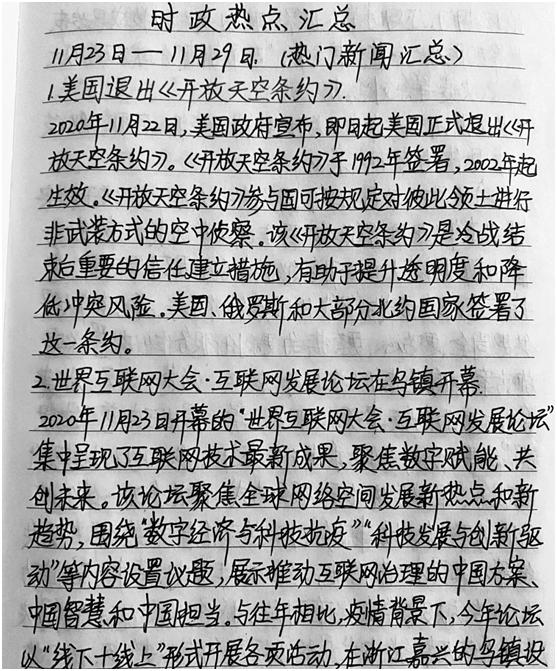 时政热点汇总
11月23日——11月29日.(热门新闻汇总)
1.美国退出《开放天空条约》.
2020年11月22日,美国政府宣布,即日起美国正式退出《开
放天空条约》。《开放天空条约》于1992年签署,2002年起
生效。《开放天空条约》参与国可按规定对彼此领土进行
非武装方式的空中侦察.该《开放天空条约》是冷战结
束后重要的信任建立措施,有助于提升透明度和降
低冲突风险.美国、俄罗斯和大部分北约国家签署了
这一条约。
2.世界互联网大会·互联网发展论坛在乌镇开幕.
2020年11月23日开幕的“世界互联网大会·互联网发展论坛”
集中呈现了互联网技术最新成果,聚焦数字赋能、共
创未来。该论坛聚焦全球网络空间发展新热点和新
趋势,围绕“数字经济与科技抗疫”“科技发展与创新驱
动”等内容设置议题,展示推动互联网治理的中国方案、
中国智慧和中国担当.与往年相比,疫情背景下,今年论坛
以“线下+线上”形式开展各项活动,在浙江嘉兴的乌镇设